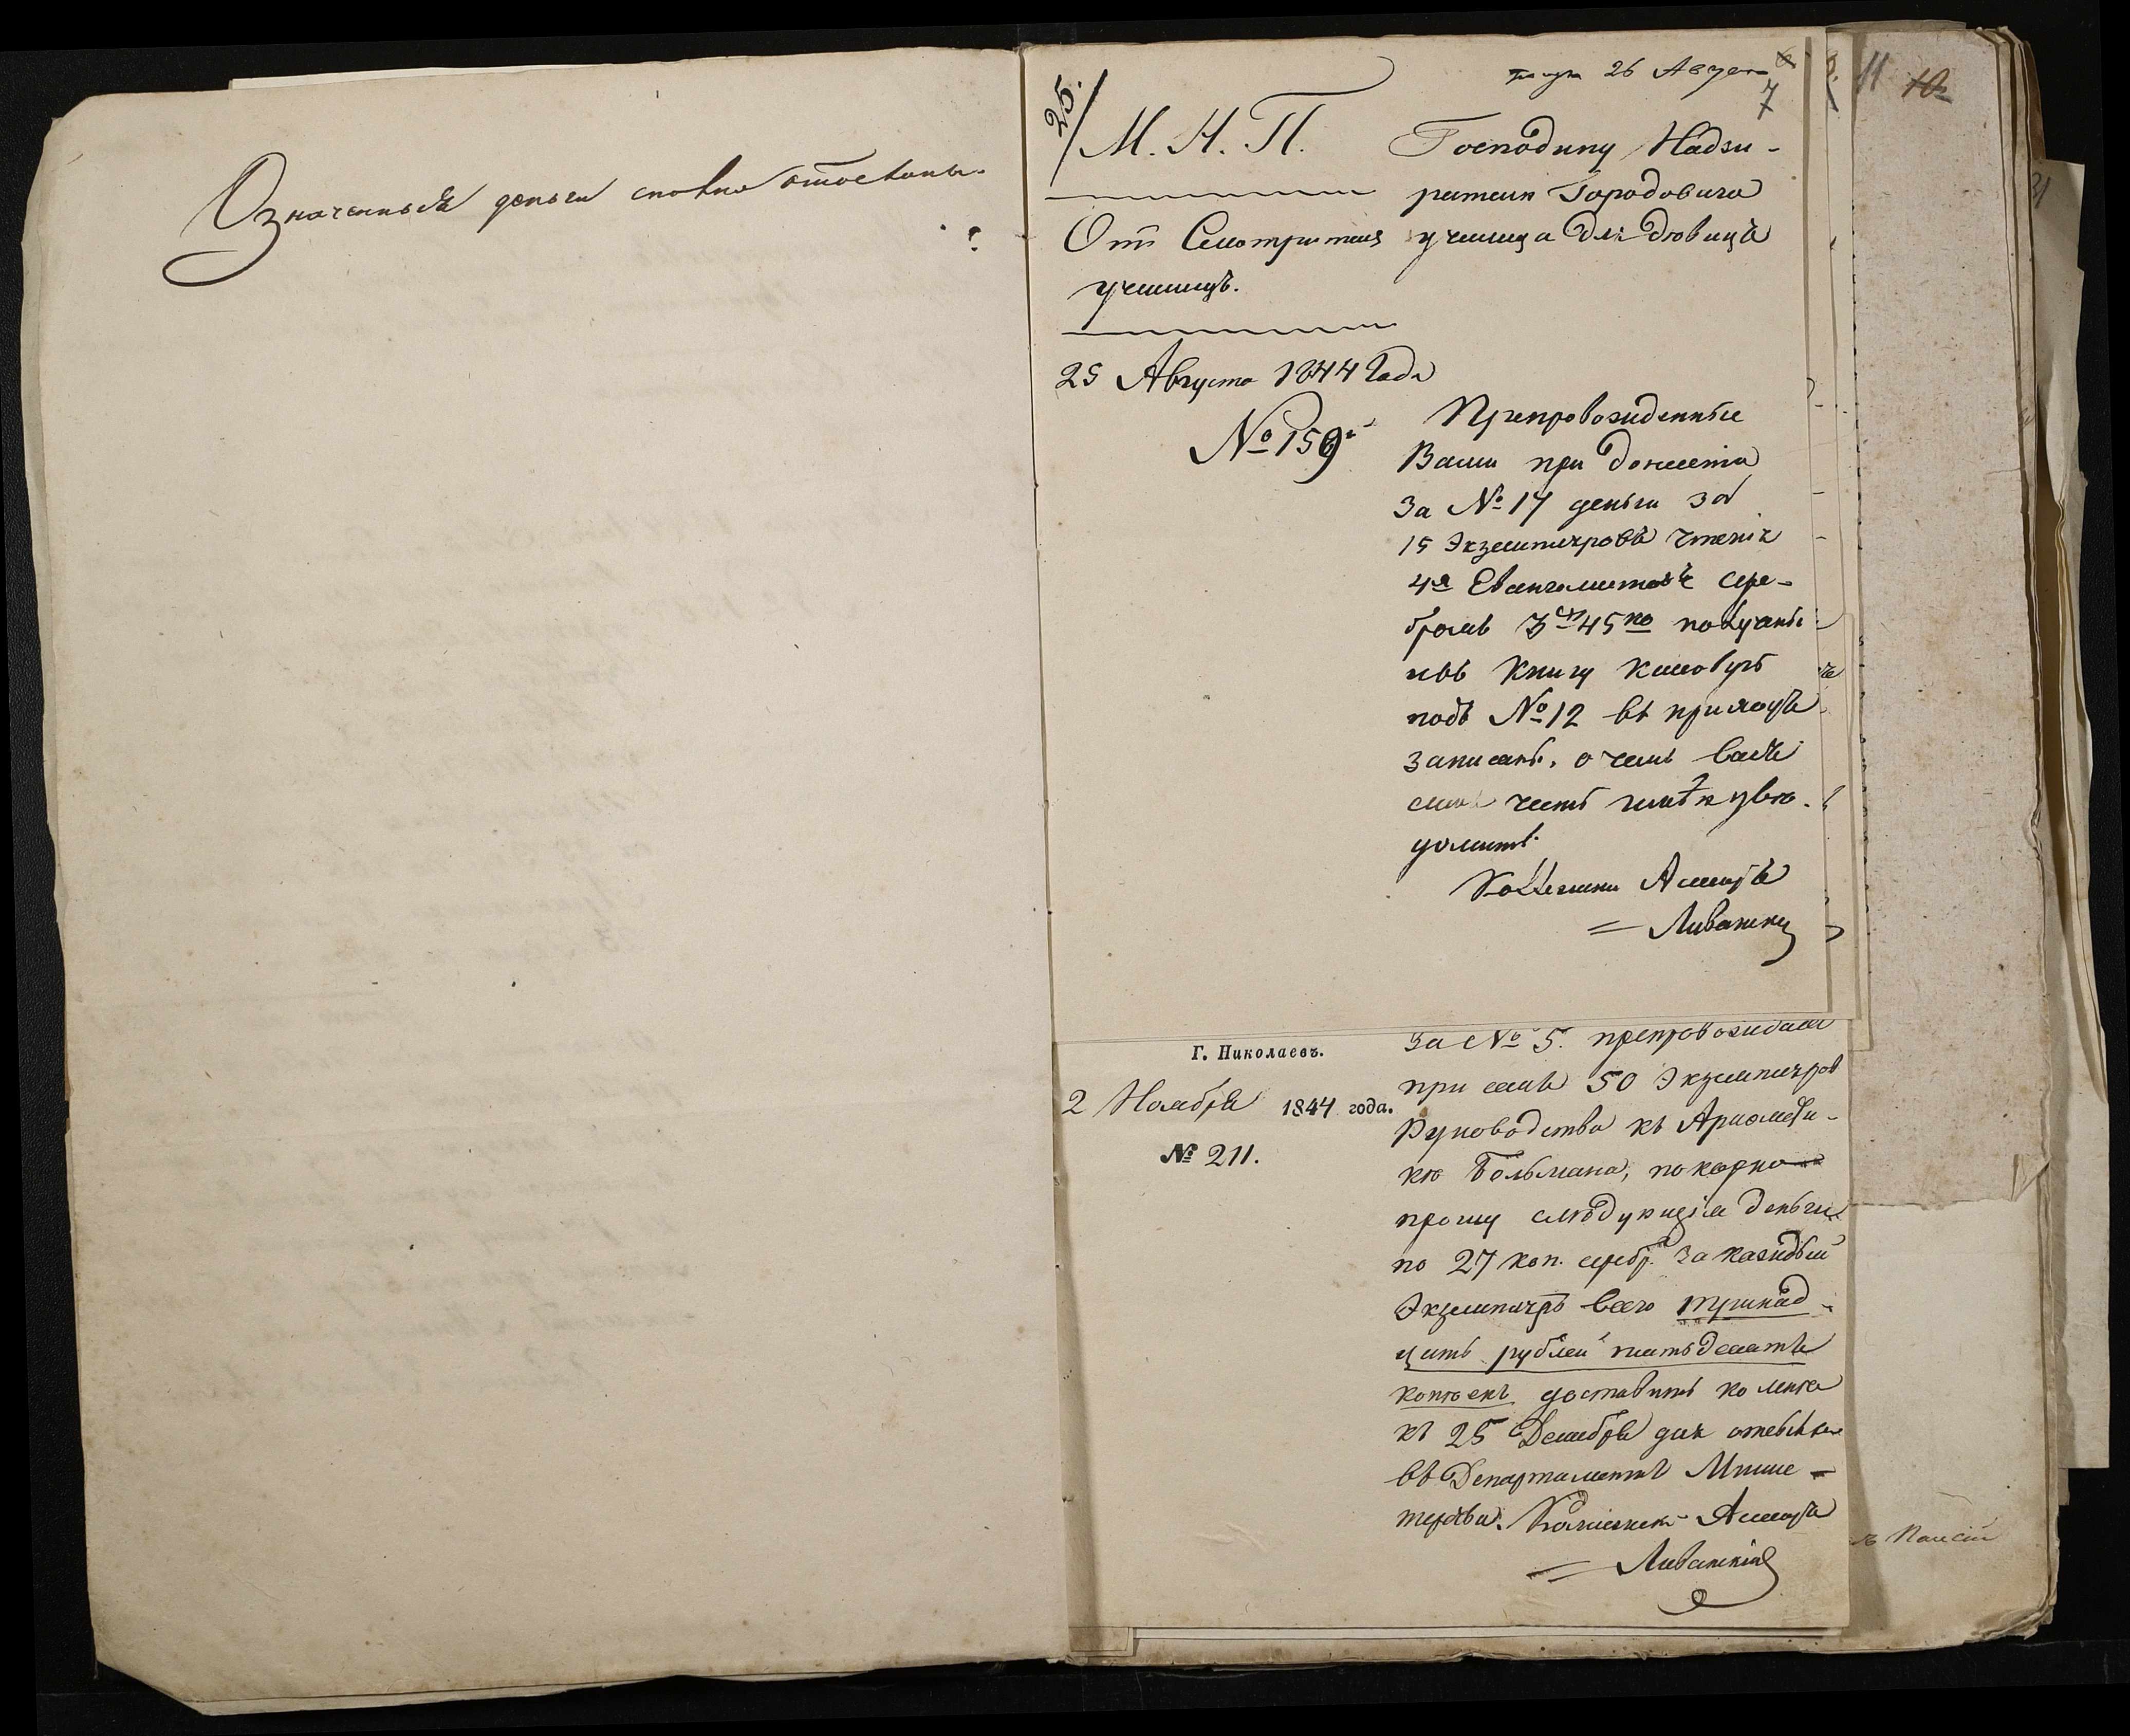 Означенныя деньги сполна
25.
26 Августа
7
М. Н. П.
Отъ Смотрителя
училищъ.
25 Августа 1844 Года
№ 159
Господину Надзи-
рателю Городоваго
училища для дѣвицъ
Препровожденные
Вами при
За № 17 деньги за
15 Экземпляровъ чтенія
4хъ Евангелистовъ сере-
бромъ 45 ко получены
книгу
подъ № 12 въ приходъ
записаны, о чемъ Васъ
честь имѣю увѣ-
домить
Коллежски Ассесоръ
Ливанскій
Г. Николаевъ.
2 Ноября 1844 года.
№ 211.
за № 5. препровождая
при семъ 50 Экземпляров
Руководства къ Ариѳмети-
кѣ Больмана, покорно
прошу слѣдующія деньги
по 27 коп. серебр. за каждый
Экземпляръ всего тринад-
цать рублей пятьдесятъ
копѣекъ доставить ко мнѣ
къ 25 Декабря для отсылки
въ Департаментъ Минис-
терства. Коллежск. Ассесоръ
Ливанскій
11 10
Пансіи